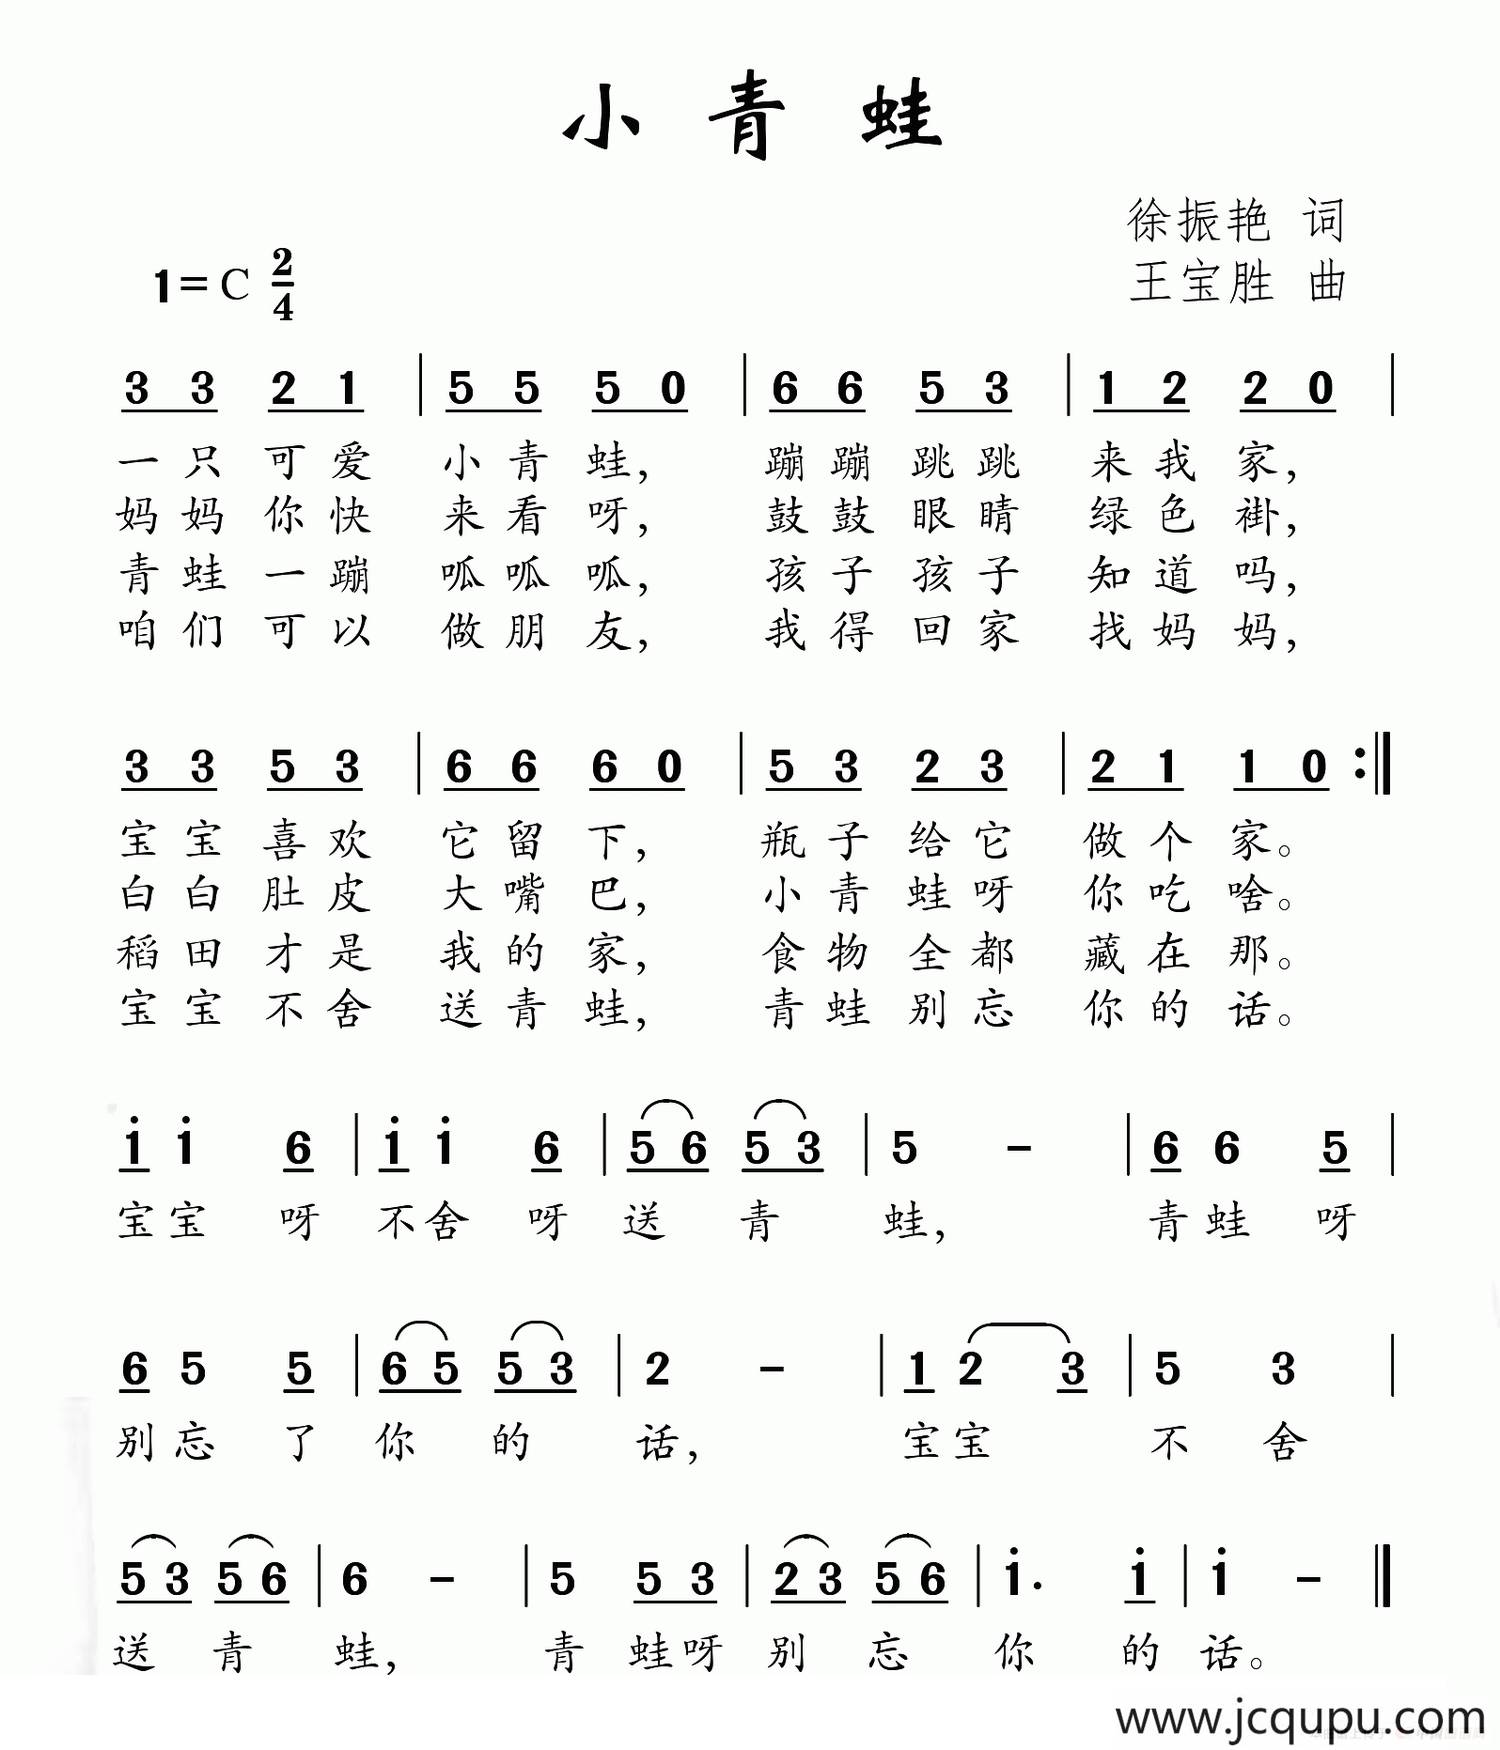 小青蛙
徐振艳 词
1=C 2/4
王宝胜 曲
3 3 2 1 | 5 5 5 0 | 6 6 5 3 | 1 2 2 0 |
一只可爱 小青蛙， 蹦蹦跳跳 来我家，
妈妈你快 来看呀， 鼓鼓眼睛 绿色褂，
青蛙一蹦 呱呱呱， 孩子孩子 知道吗，
咱们可以 做朋友， 我得回家 找妈妈，
3 3 5 3 | 6 6 6 0 | 5 3 2 3 | 2 1 1 0 :|
宝宝喜欢 它留下， 瓶子给它 做个家。
白白肚皮 大嘴巴， 小青蛙呀 你吃啥。
稻田才是 我的家， 食物全都 藏在那。
宝宝不舍 送青蛙， 青蛙别忘 你的话。
i i 6 | i i 6 | 5 6 5 3 | 5 - | 6 6 5 |
宝宝呀 不舍呀 送青 蛙， 青蛙呀
6 5 5 | 6 5 5 3 | 2 - | 1 2 3 | 5 3 |
别忘了 你的 话， 宝宝 不舍
5 3 5 6 | 6 - | 5 5 3 | 2 3 5 6 | i. i | i - ‖
送青 蛙， 青蛙呀 别忘 你的 话。
www.jcqupu.com